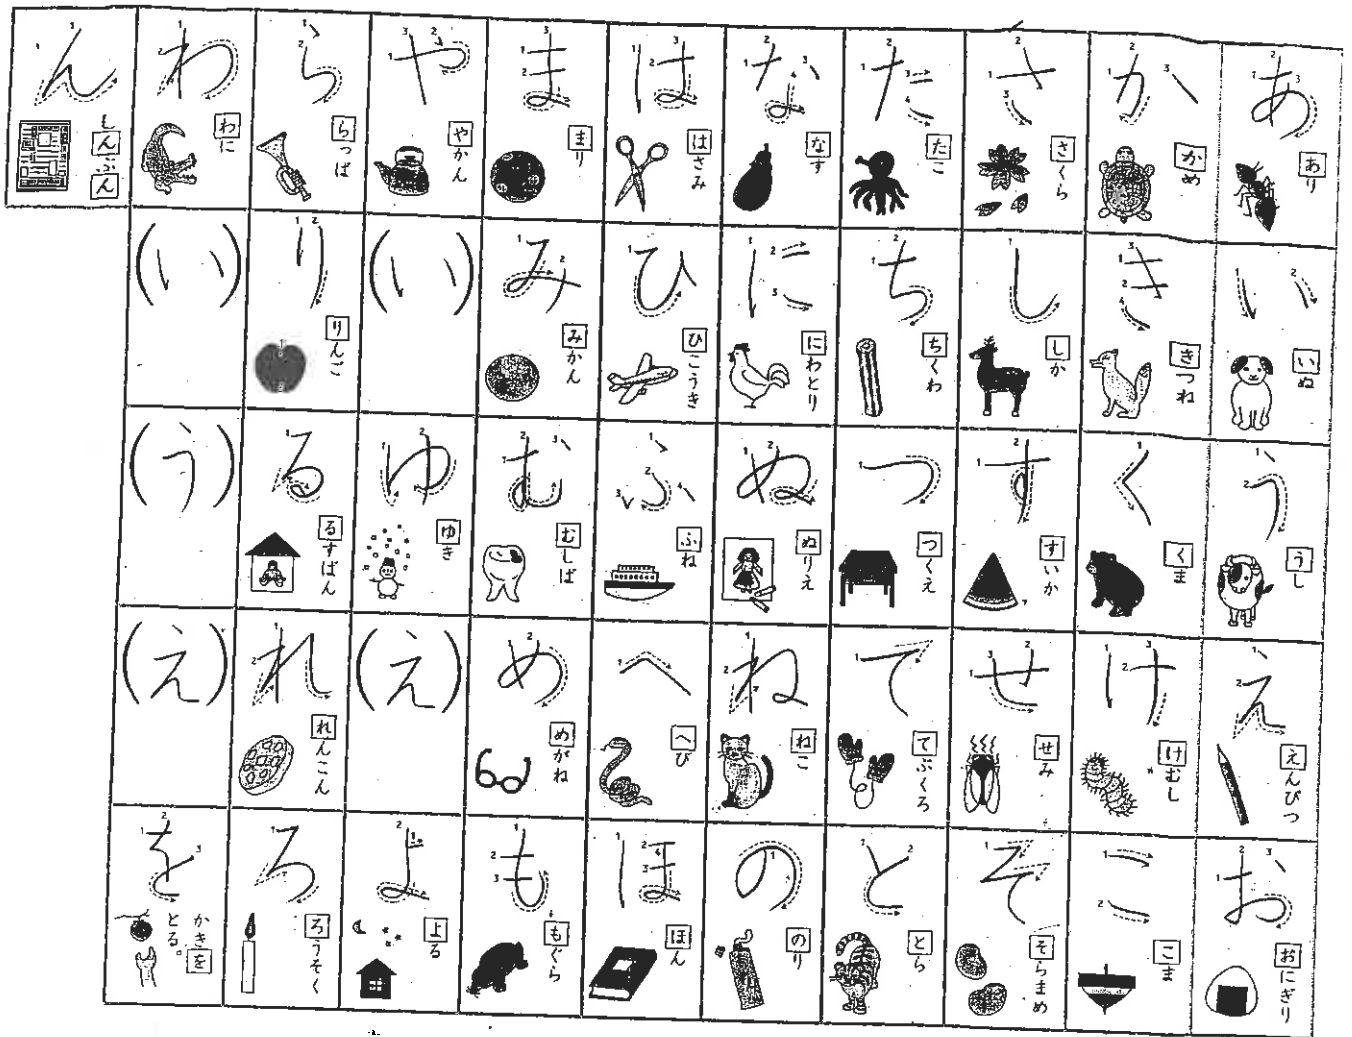 あ
あり
い
いぬ
う
うし
え
えんぴつ
お
おにぎり
か
かめ
き
きつね
く
くま
け
けむし
こ
こま
さ
さくら
し
しか
す
すいか
せ
せみ
そ
そらまめ
た
たこ
ち
ちくわ
つ
つくえ
て
てぶくろ
と
とら
な
なす
に
にわとり
ぬ
ぬりえ
ね
ねこ
の
のり
は
はさみ
ひ
ひこうき
ふ
ふね
へ
へび
ほ
ほん
ま
まり
み
みかん
む
むしば
め
めがね
も
もぐら
や
やかん
(い)
ゆ
ゆき
(え)
よ
よる
ら
らっぱ
り
りんご
る
るすばん
れ
れんこん
ろ
ろうそく
わ
わに
(い)
(う)
(え)
を
かきを
とる。
ん
しんぶん